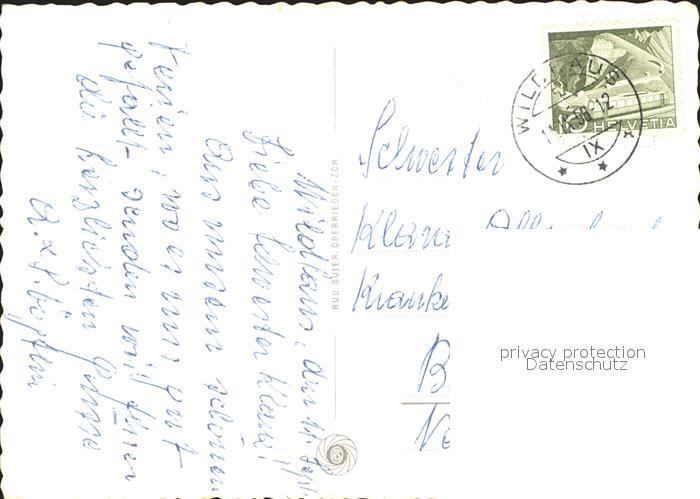 Wildhaus, den 11. Sept.
Liebe Schwester Klara!
Aus unsern schönen
Ferien, wo es uns gut
gefällt, senden wir Ihnen
die herzlichsten Grüsse
RUD. SUTER, OBERRIEDEN-ZCH.
WILDHAUS
IX
10 HELVETIA
Schwester
Klara
Kranke
B
privacy protection
Datenschutz